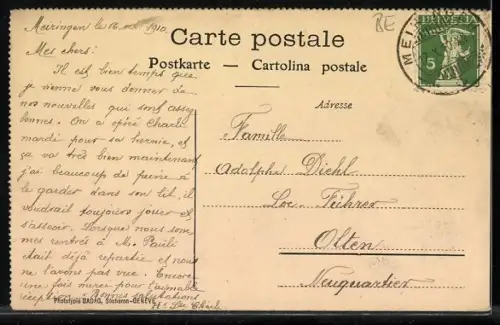 Meiringen le 16 1910
BE
Carte postale
Postkarte — Cartolina postale
HELVETIA
5
MEI
Mes chers:
Il est bien temps que
je vienne vous donner de
nos nouvelles qui sont assez
bonnes. On a opéré Charli
mardi pour sa hernie, et
ça va très bien maintenant
j'ai beaucoup de peine à
le garder dans son lit, il
voudrait toujours jouer et
s'asseoir. Lorsque nous som
mes rentrés à M. Pauli
était déjà repartie et nous
ne l'avons pas vue. Encore
une fois merci pour l'aimable
réception - Bonnes salutations
Adresse
Famille
Adolphe Diehl
Loc. Führer
Olten
Neuquartier
Phototypie DADAG, Séchéron-GENÈVE